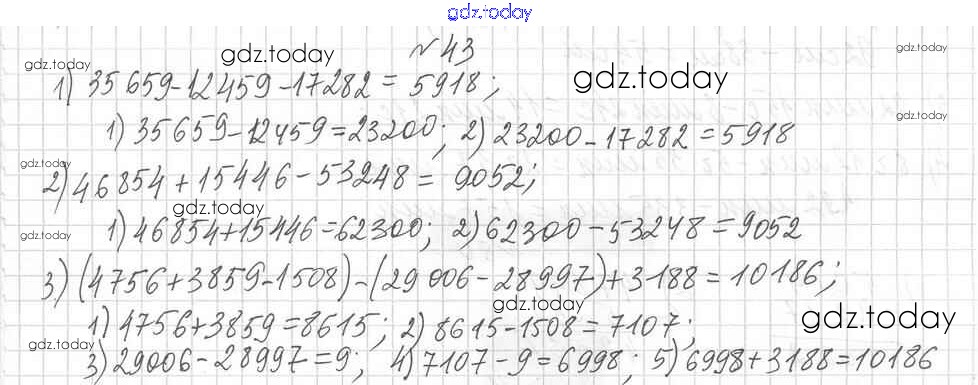 gdz.today
№ 43
gdz.today gdz.today gdz.today gdz.today
1) 35 659-12459-17282 = 5918;
gdz.today
1) 35659-12459=23200; 2) 23200-17282=5918
gdz.today
2) 46854+15446-53248= 9052;
gdz.today
1) 46854+15446=62300; 2) 62300-53248=9052
gdz.today
3) (4756+3859-1508)-(29006-28997)+3188=10186;
gdz.today gdz.today
1) 4756+3859=8615; 2) 8615-1508=7107;
gdz.today
3) 29006-28997=9; 4) 7107-9=6998; 5) 6998+3188=10186